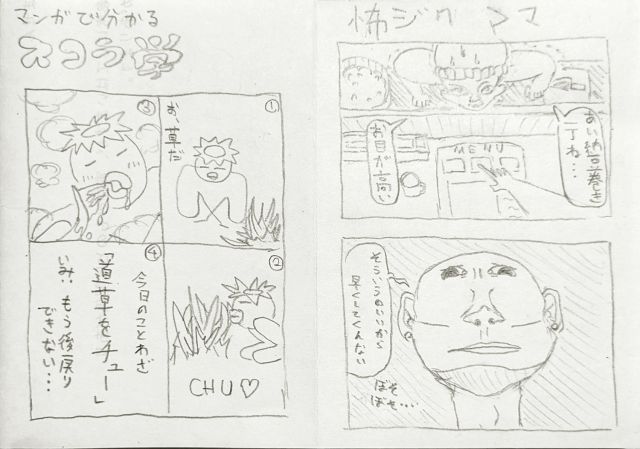 マンガで分かる
スコラ学
①
お、草だ
②
CHU♡
③
④
今日のことわざ
「道草をチュー」
いみ：もう後戻り
できない・・・
あい納豆巻き
丁ね・・・
MENU
お目が高い
そういうのいいから
早くしてくんない
ぼそ
ぼそ・・・